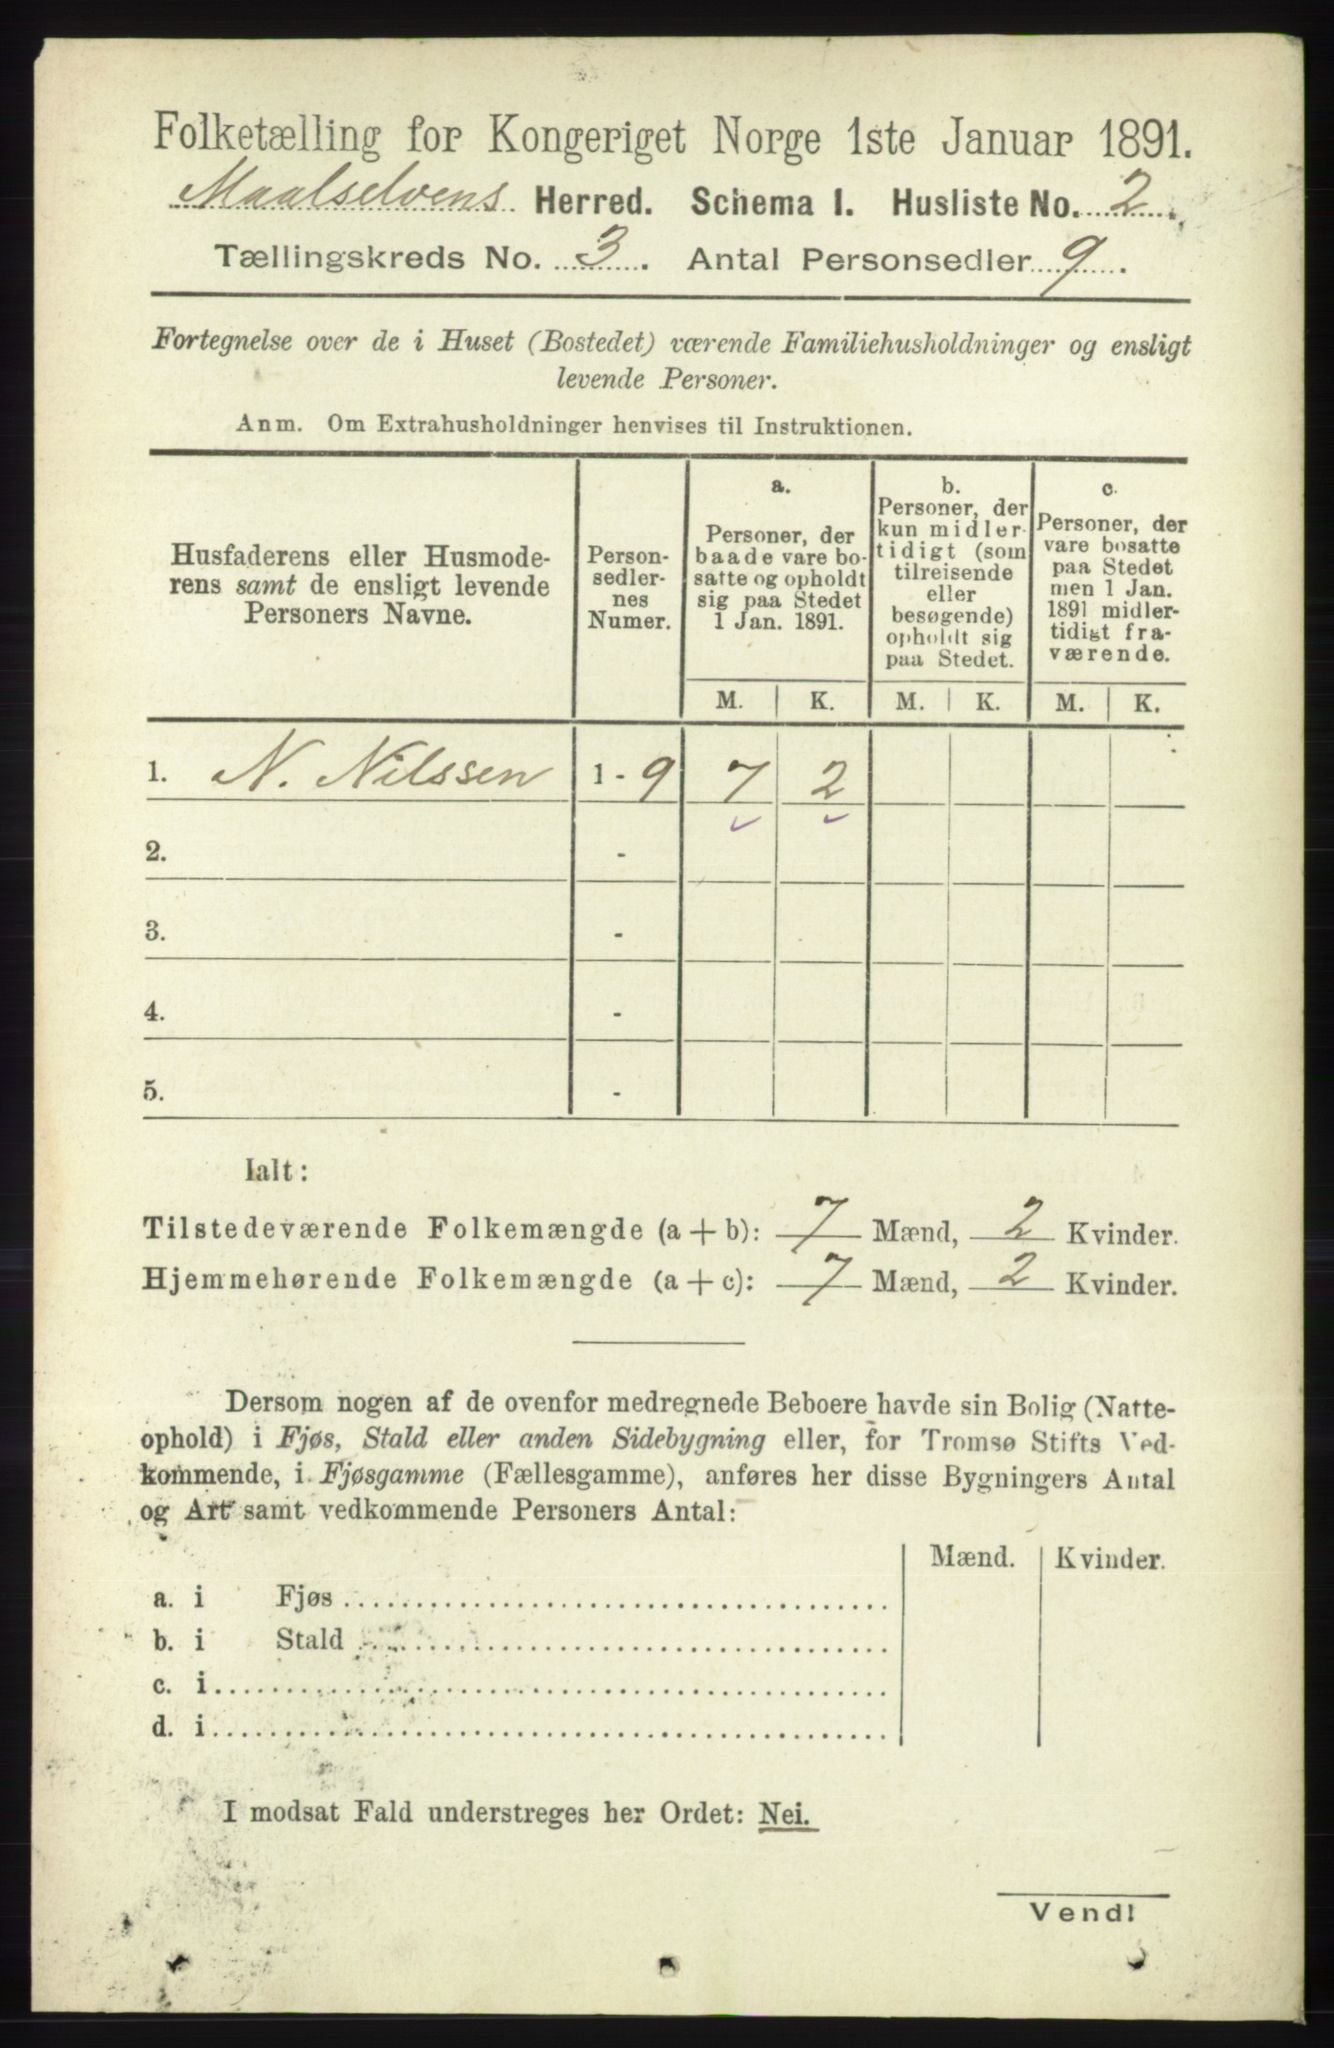 Folketælling for Kongeriget Norge 1ste Januar 1891.
Maalselvens Herred. Schema 1. Husliste No. 2.
Tællingskreds No. 3. Antal Personsedler 9.
Fortegnelse over de i Huset (Bostedet) værende Familiehusholdninger og ensligt
levende Personer.
Anm. Om Extrahusholdninger henvises til Instruktionen.
Husfaderens eller Husmode-
rens samt de ensligt levende
Personers Navne.
Person-
sedler-
nes
Numer.
a.
Personer, der
baade vare bo-
satte og opholdt
sig paa Stedet
1 Jan. 1891.
b.
Personer, der
kun midler-
tidigt (som
tilreisende
eller
besøgende)
opholdt sig
paa Stedet.
c.
Personer, der
vare bosatte
paa Stedet
men 1 Jan.
1891 midler-
tidigt fra-
værende.
M. K. M. K. M. K.
1. N. Nilssen 1 - 9 7 2
2. -
3. -
4. -
5. -
Ialt:
Tilstedeværende Folkemængde (a + b): 7 Mænd, 2 Kvinder.
Hjemmehørende Folkemængde (a + c): 7 Mænd, 2 Kvinder.
Dersom nogen af de ovenfor medregnede Beboere havde sin Bolig (Natte-
ophold) i Fjøs, Stald eller anden Sidebygning eller, for Tromsø Stifts Ved-
kommende, i Fjøsgamme (Fællesgamme), anføres her disse Bygningers Antal
og Art samt vedkommende Personers Antal:
Mænd. Kvinder.
a. i Fjøs
b. i Stald
c. i
d. i
I modsat Fald understreges her Ordet: Nei.
Vend!